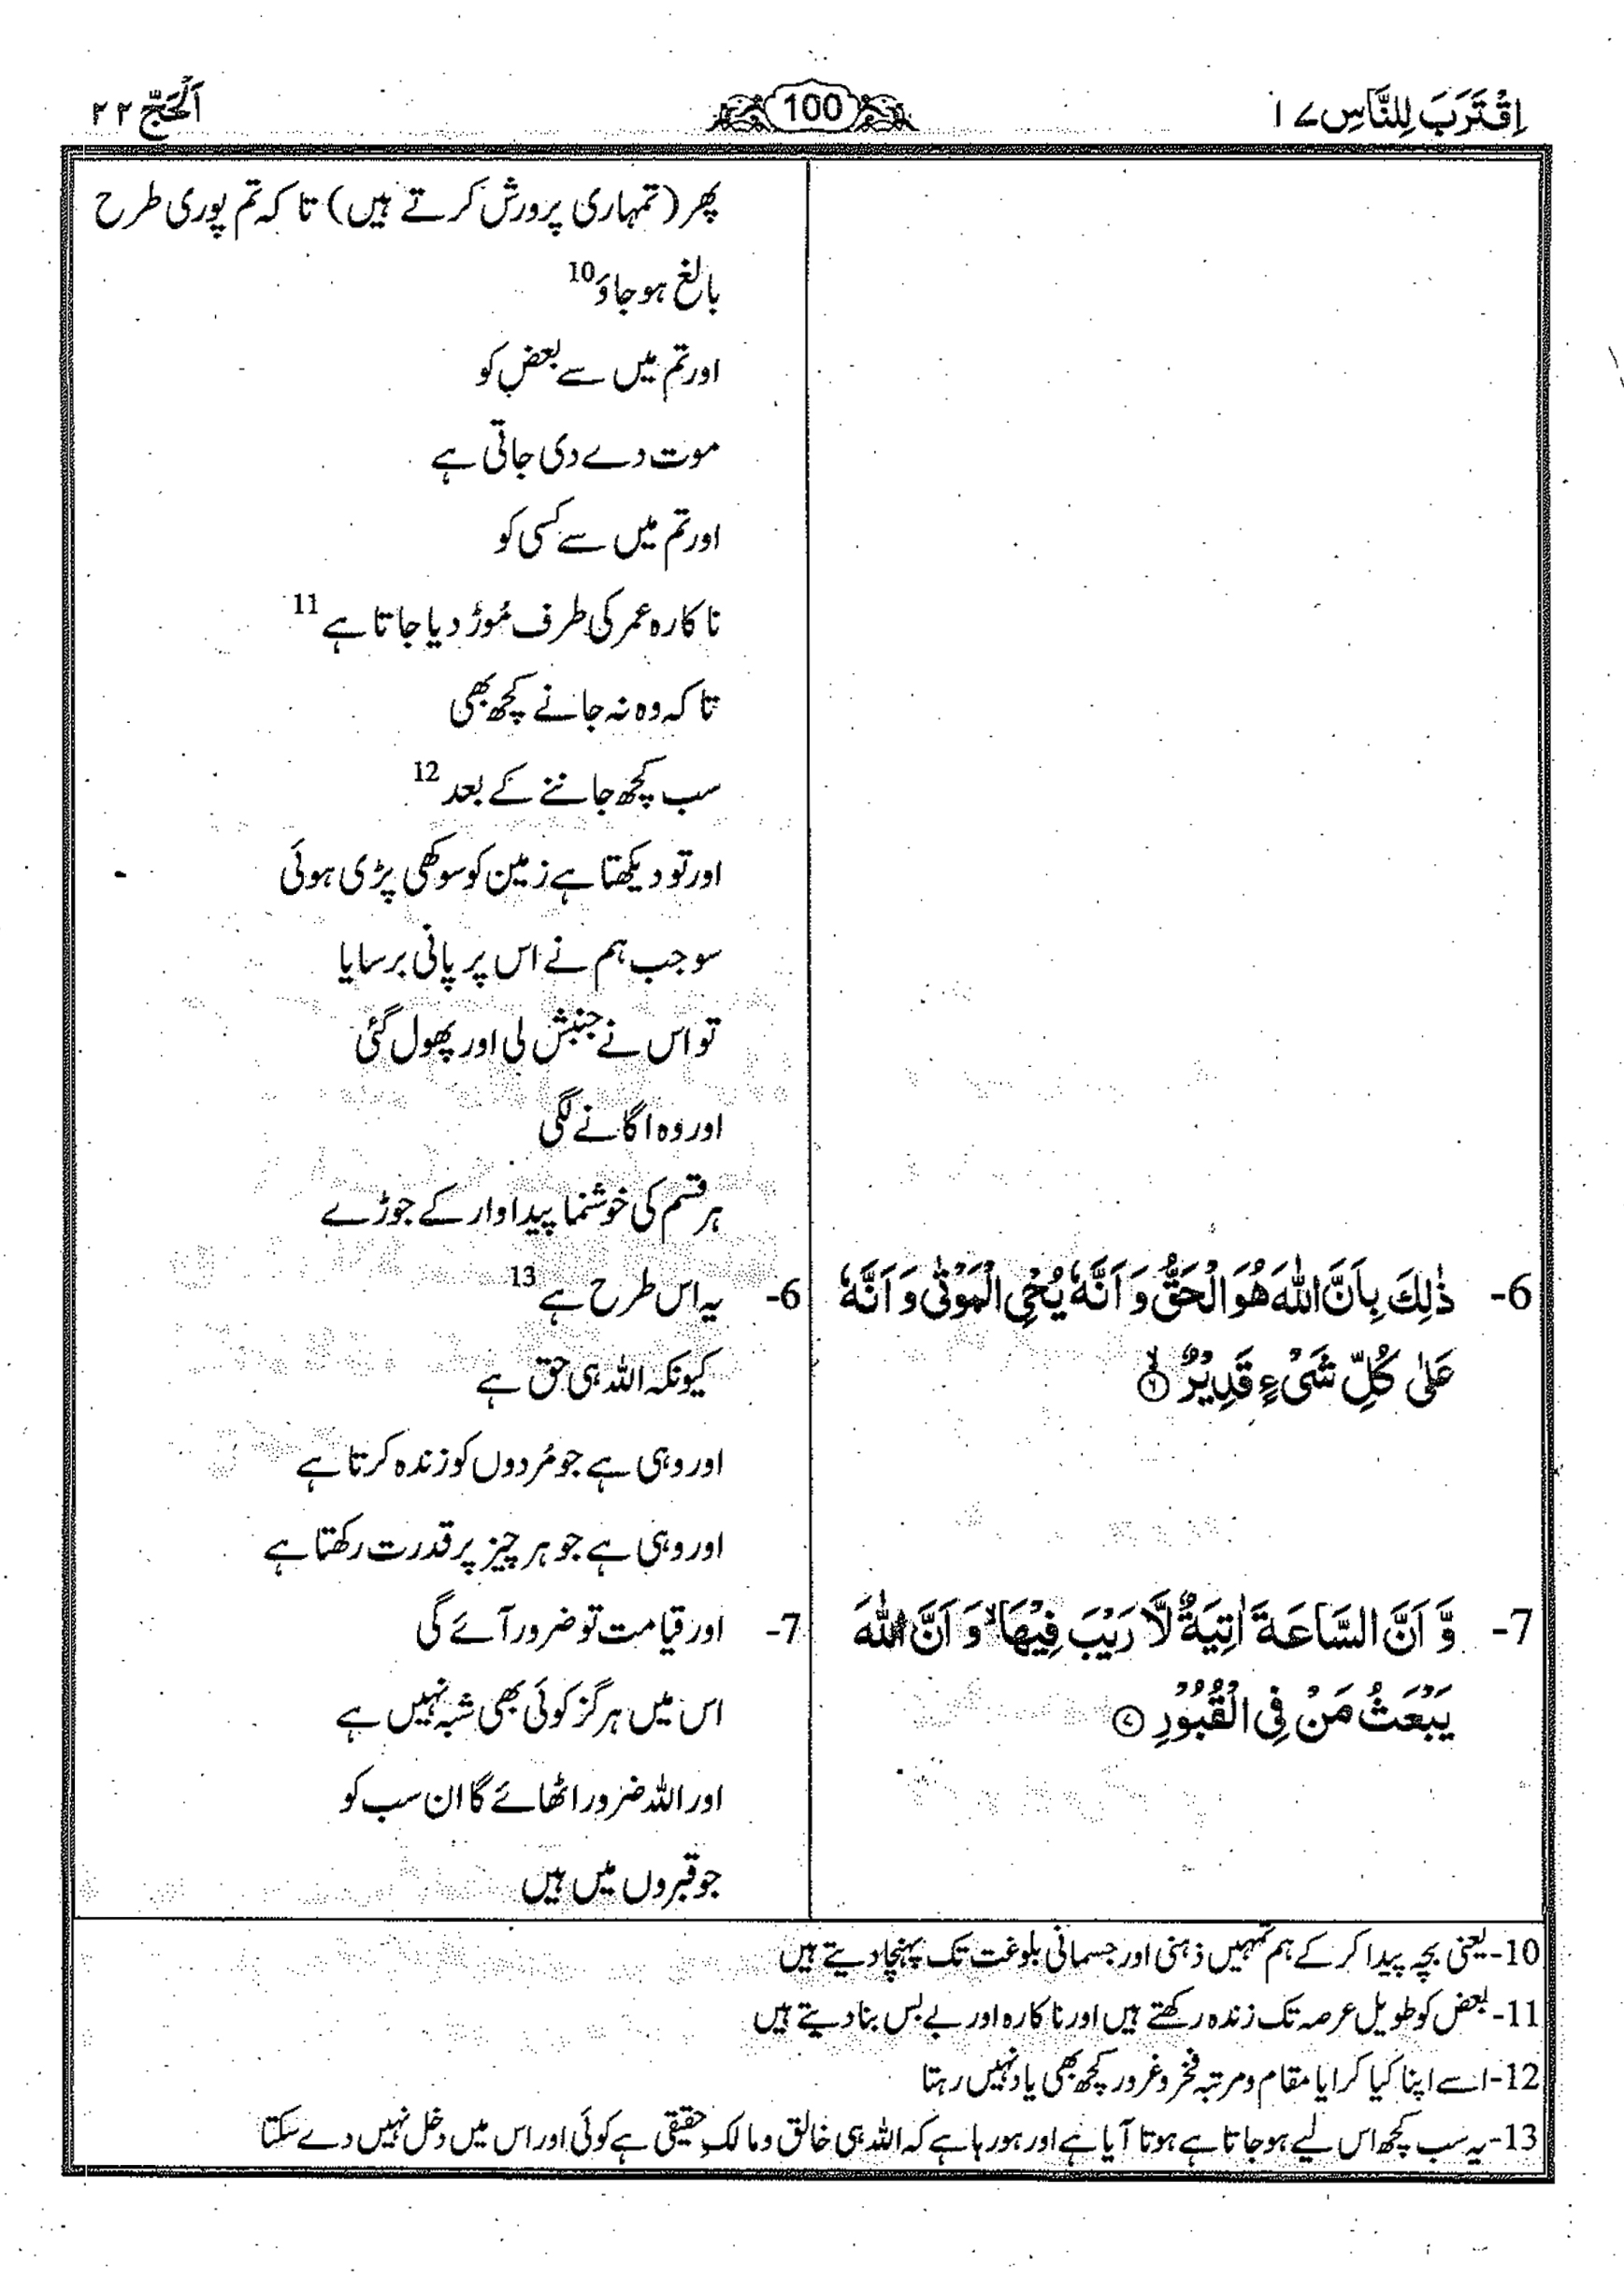 اِقْتَرَبَ لِلنَّاسِ ۱۷
100
اَلْحَجّ ۲۲
پھر (تمہاری پرورش کرتے ہیں) تا کہ تم پوری طرح
بالغ ہو جاؤ 10
اور تم میں سے بعض کو
موت دے دی جاتی ہے
اور تم میں سے کسی کو
ناکارہ عمر کی طرف مُوڑ دیا جاتا ہے 11
تا کہ وہ نہ جانے کچھ بھی
سب کچھ جاننے کے بعد 12
اور تو دیکھتا ہے زمین کو سوکھی پڑی ہوئی
سو جب ہم نے اس پر پانی برسایا
تو اس نے جنبش لی اور پھول گئی
اور وہ اگانے لگی
ہر قسم کی خوشنما پیداوار کے جوڑے
6- ذٰلِكَ بِاَنَّ اللّٰهَ هُوَ الْحَقُّ وَ اَنَّهٗ يُحْيِ الْمَوْتٰى وَ اَنَّهٗ
عَلٰى كُلِّ شَىْءٍ قَدِيْرٌ ۙ ۶
6- یہ اس طرح ہے 13
کیونکہ اللہ ہی حق ہے
اور وہی ہے جو مُردوں کو زندہ کرتا ہے
اور وہی ہے جو ہر چیز پر قدرت رکھتا ہے
7- وَّ اَنَّ السَّاعَةَ اٰتِيَةٌ لَّا رَيْبَ فِيْهَا ۙ وَ اَنَّ اللّٰهَ
يَبْعَثُ مَنْ فِى الْقُبُوْرِ ۷
7- اور قیامت تو ضرور آئے گی
اس میں ہرگز کوئی بھی شبہ نہیں ہے
اور اللہ ضرور اٹھائے گا ان سب کو
جو قبروں میں ہیں
10- یعنی بچہ پیدا کر کے ہم تمہیں ذہنی اور جسمانی بلوغت تک پہنچا دیتے ہیں
11- بعض کو طویل عرصہ تک زندہ رکھتے ہیں اور ناکارہ اور بے بس بنا دیتے ہیں
12- اسے اپنا کیا کرایا مقام و مرتبہ فخر و غرور کچھ بھی یاد نہیں رہتا
13- یہ سب کچھ اس لیے ہو جاتا ہے ہوتا آیا ہے اور ہو رہا ہے کہ اللہ ہی خالق و مالکِ حقیقی ہے کوئی اور اس میں دخل نہیں دے سکتا